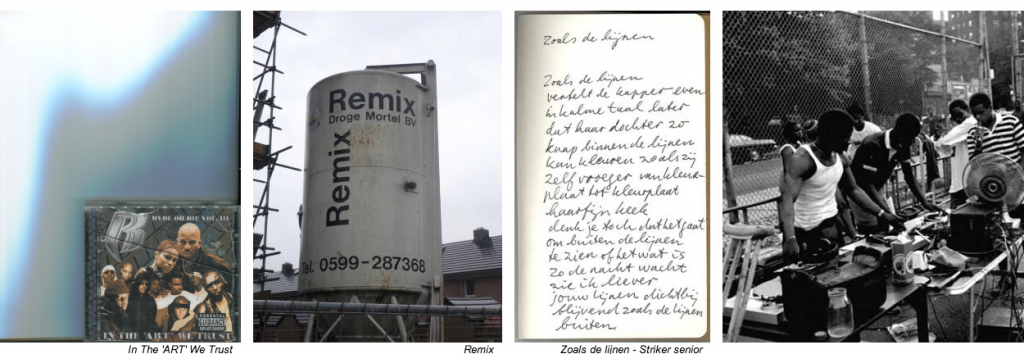 RYDE OR DIE VOL. III
R
PARENTAL
IN THE 'ART' WE TRUST
In The 'ART' We Trust
Remix
Droge Mortel BV
Remix
Tel. 0599-287368
Remix
Zoals de lijnen
Zoals de lijnen
vertelt de kapper even
in kalme taal later
dat haar dochter zo
knap binnen de lijnen
kan kleuren zoals zij
zelf vroeger van kleur-
plaat tot kleurplaat
haarfijn keek
denk je toch dat het gaat
om buiten de lijnen
te zien of het wat is
zo de nacht wacht
zie ik liever
jouw lijnen dichtbij
blijvend zoals de lijnen
buiten
Zoals de lijnen - Striker senior